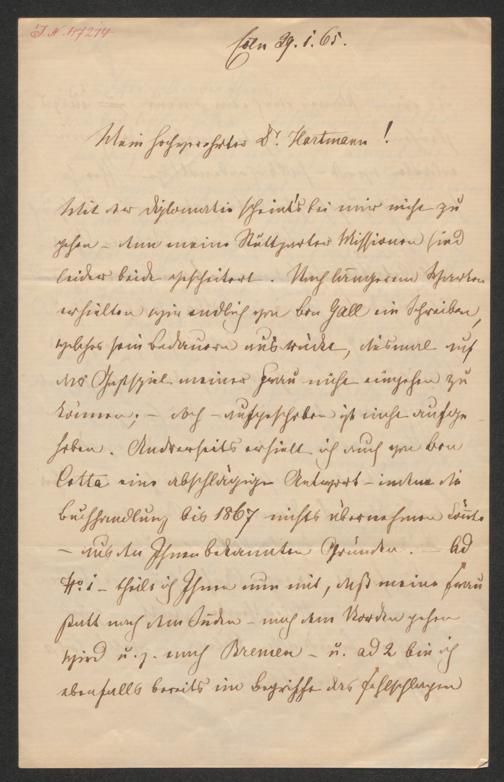 J. N. 47274
Cöln 29. 1. 65.
Mein hochverehrter Dr. Hartmann!
Mit der Diplomatie scheint's bei mir nicht zu
gehen – denn meine Stuttgarter Missionen sind
leider beide gescheitert. Nach längerem Warten
erhielten wir endlich von Bon Gall ein Schreiben,
welches sein Bedauern ausdrückt, diesmal auf
das Gastspiel meiner Frau nicht eingehen zu
können; – doch – aufgeschoben ist nicht aufge-
hoben. Andrerseits erhielt ich auch von Bon
Cotta eine abschlägige Antwort – indem die
Buchhandlung bis 1867 nichts übernehmen könnte
– aus den Ihnen bekannten Gründen. – Ad
No 1 – theile ich Ihnen nun mit, daß meine Frau
statt nach dem Süden – nach dem Norden gehen
wird u. z. nach Bremen – u. ad 2 bin ich
ebenfalls bereits im Begriffe das Fehlschlagen